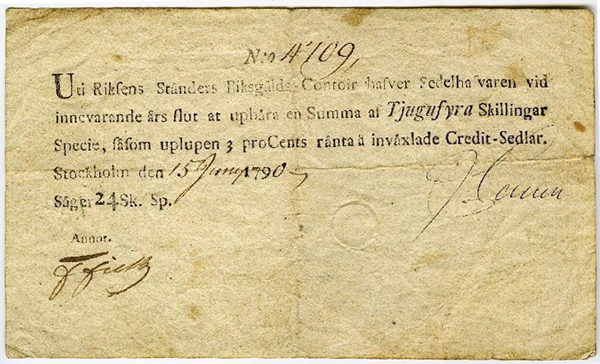 N:o 4709,
Uti Riksens Ständers Riksgälds-Contoir hafver Sedelhafvaren vid
innevarande års slut at uphära en Summa af Tjugufyra Skillingar
Specie, såsom uplupen 3 proCents ränta å invåxlade Credit-Sedlar.
Stockholm den 15 Juny 1790
Säger 24 Sk. Sp.
Annot.